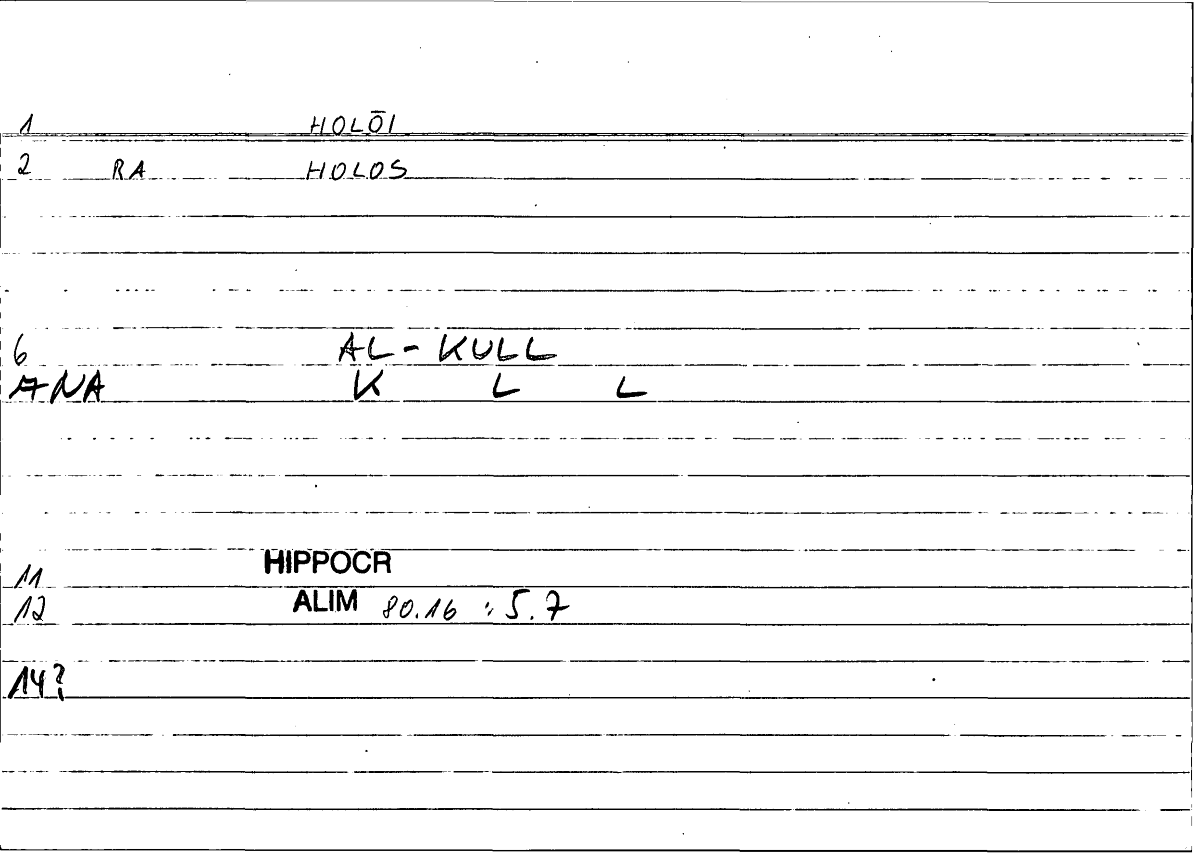 1 HOLŌI
2 RA HOLOS
6 AL - KULL
ANA K L L
11 HIPPOCR
12 ALIM 80.16 : 5.7
14?